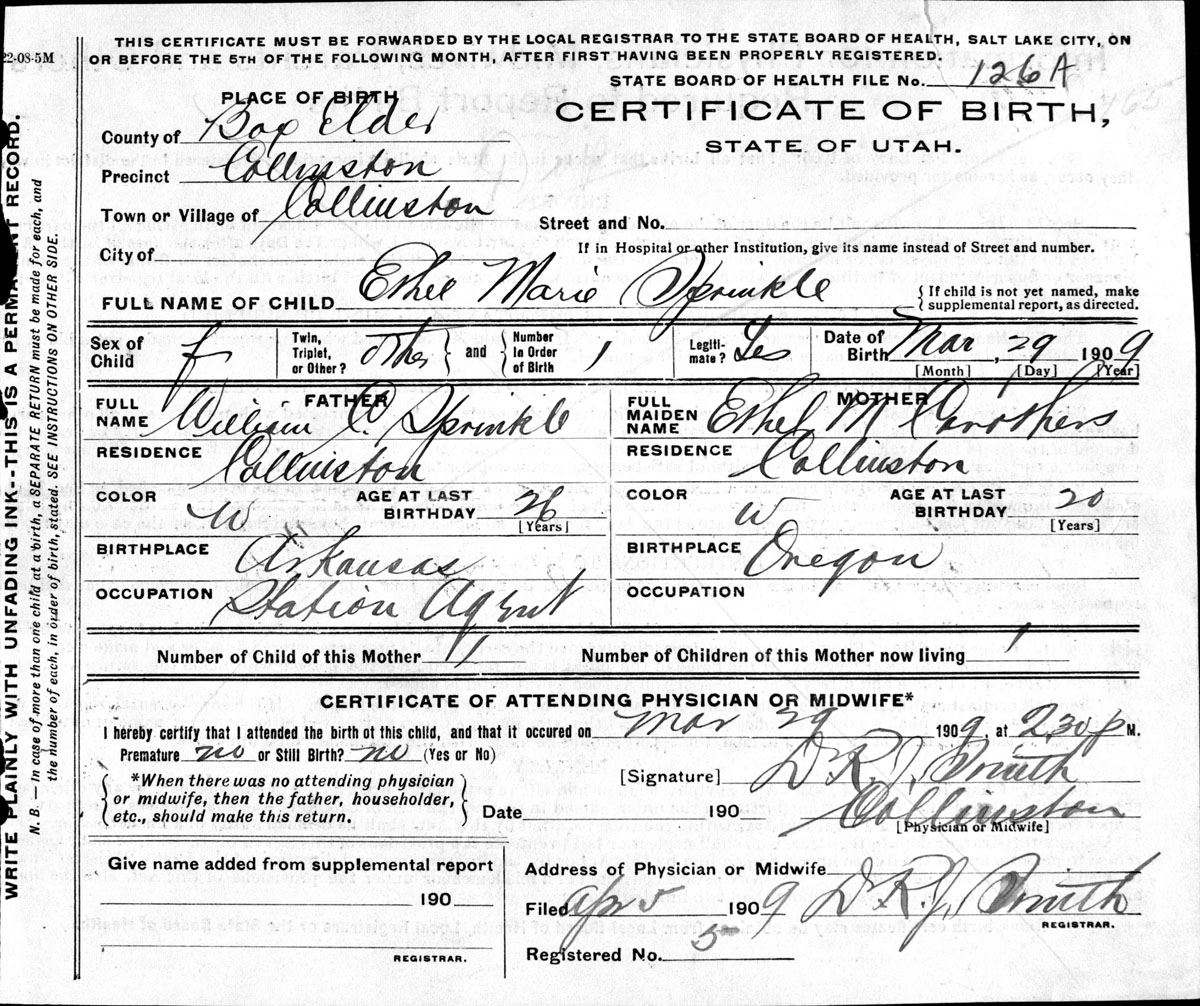 22-08-5M
THIS CERTIFICATE MUST BE FORWARDED BY THE LOCAL REGISTRAR TO THE STATE BOARD OF HEALTH, SALT LAKE CITY, ON
OR BEFORE THE 5TH OF THE FOLLOWING MONTH, AFTER FIRST HAVING BEEN PROPERLY REGISTERED.
STATE BOARD OF HEALTH FILE No. 126A
465
PLACE OF BIRTH
CERTIFICATE OF BIRTH,
STATE OF UTAH.
County of Box Elder
Precinct Collinston
Town or Village of Collinston
Street and No.
If in Hospital or other Institution, give its name instead of Street and number.
City of
FULL NAME OF CHILD Ethel Marie Sprinkle
{ If child is not yet named, make supplemental report, as directed.
Sex of Child f Twin, Triplet, or Other? other } and { Number In Order of Birth 1 Legitimate? Yes Date of Birth Mar, 29 1909
[Month] [Day] [Year]
FATHER
FULL NAME William C. Sprinkle
RESIDENCE Collinston
COLOR W AGE AT LAST BIRTHDAY 26 [Years]
BIRTHPLACE Arkansas
OCCUPATION Station Agent
MOTHER
FULL MAIDEN NAME Ethel M Carothers
RESIDENCE Collinston
COLOR W AGE AT LAST BIRTHDAY 20 [Years]
BIRTHPLACE Oregon
OCCUPATION
Number of Child of this Mother 1 Number of Children of this Mother now living 1
CERTIFICATE OF ATTENDING PHYSICIAN OR MIDWIFE*
I hereby certify that I attended the birth of this child, and that it occured on Mar 29 1909, at 2.30 p M.
Premature no or Still Birth? no (Yes or No)
{ *When there was no attending physician or midwife, then the father, householder, etc., should make this return. }
[Signature] Dr. J. Smith
Date 190 Collinston
[Physician or Midwife]
Give name added from supplemental report
190
REGISTRAR.
Address of Physician or Midwife
Filed Apr 5 1909 Dr J. Smith
REGISTRAR.
Registered No. 5
WRITE PLAINLY WITH UNFADING INK--THIS IS A PERMANENT RECORD.
N. B. — In case of more than one child at a birth, a SEPARATE RETURN must be made for each, and
the number of each, in order of birth, stated. SEE INSTRUCTIONS ON OTHER SIDE.